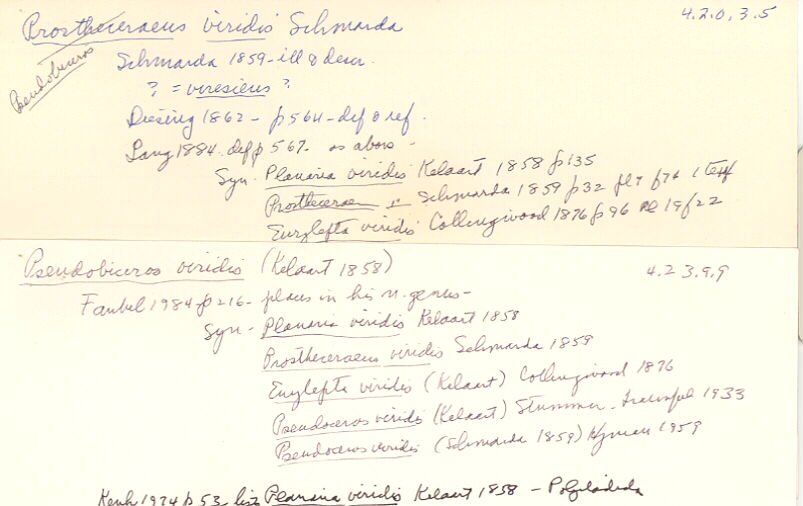 Prostheceraeus viridis Schmarda 4.2.0.3.5
Pseudobiceros
Schmarda 1859 - ill & descr.
? = viresieus ?
Diesing 1862 - p564 - def & ref.
Lang 1884 def p 567 - as above -
Syn. Planaria viridis Kelaart 1858 p135
Prosthecerae " Schmarda 1859 p32 pl 7 f74 1 text f
Eurylepta viridis Collingwood 1876 p96 pl 19 f22
Pseudobiceros viridis (Kelaart 1858) 4.2 3.9.9
Faubel 1984 p216 - places in his n. genus -
Syn - Planaria viridis Kelaart 1858
Prostheceraeus viridis Schmarda 1859
Eurylepta viridis (Kelaart) Collingwood 1876
Pseudoceros viridis (Kelaart) Stummer-Traunfels 1933
Pseudoceros viridis (Schmarda 1859) Hyman 1959
Kenk 1974 p 53 lists Planaria viridis Kelaart 1858 - Polycladida